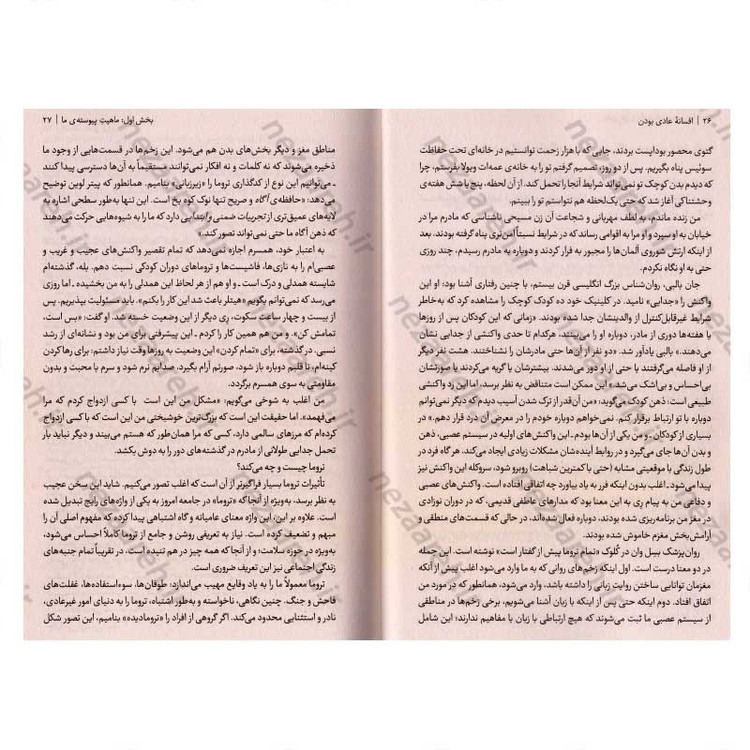 ۲۶ | افسانهٔ عادی بودن
گتوی محصور بوداپست بردند، جایی که با هزار زحمت توانستیم در خانه‌ای تحت حفاظت
سوئیس پناه بگیریم. پس از دو روز، تصمیم گرفتم تو را به خانه‌ی عمه‌ات ویولا بفرستم، چرا
که دیدم بدن کوچک تو نمی‌تواند شرایط آنجا را تحمل کند. از آن لحظه، پنج یا شش هفته‌ی
وحشتناکی آغاز شد که حتی یک‌لحظه هم نتواستم تو را ببینم.
من زنده ماندم، به لطف مهربانی و شجاعت آن زن مسیحی ناشناسی که مادرم مرا در
خیابان به او سپرد و او مرا به اقوامی رساند که در شرایط نسبتاً امن‌تری پناه گرفته بودند. بعد
از اینکه ارتش شوروی آلمان‌ها را مجبور به فرار کردند و دوباره به مادرم رسیدم، چند روزی
حتی به او نگاه نکردم.
جان بالبی، روان‌شناس بزرگ انگلیسی قرن بیستم، با چنین رفتاری آشنا بود؛ او این
واکنش را «جدایی» نامید. در کلینیک خود ده کودک کوچک را مشاهده کرد که به‌خاطر
شرایط غیرقابل‌کنترل از والدینشان جدا شده بودند. «زمانی که این کودکان پس از روزها
یا هفته‌ها دوری از مادر، دوباره او را می‌بینند، هرکدام تا حدی واکنشی از جدایی نشان
می‌دهند.» بالبی یادآور شد. «دو نفر از آن‌ها حتی مادرشان را نشناختند. هشت نفر دیگر
از او فاصله می‌گرفتند یا حتی از او دور می‌شدند. بیشترشان یا گریه می‌کردند یا صورتشان
بی‌احساس و بی‌اشک می‌شد.» این ممکن است متناقض به نظر برسد، اما این رد واکنشی
طبیعی است؛ ذهن کودک می‌گوید: «من آن‌قدر از ترک شدن آسیب دیدم که دیگر نمی‌توانم
دوباره با تو ارتباط برقرار کنم. نمی‌خواهم دوباره خودم را در معرض آن درد قرار دهم.» در
بسیاری از کودکان ـ و من یکی از آن‌ها بودم ـ این واکنش‌های اولیه در سیستم عصبی، ذهن
و بدن آن‌ها جای می‌گیرد و در روابط آینده‌شان مشکلات زیادی ایجاد می‌کند. هرگاه فرد در
طول زندگی با موقعیتی مشابه (حتی با کمترین شباهت) روبرو شود، سروکله این واکنش نیز
پیدا می‌شود. اغلب بدون اینکه فرد به یاد بیاورد چه اتفاقی افتاده است. واکنش‌های عصبی
و دفاعی من به پیام رِی به این معنا بود که مدارهای عاطفی قدیمی، که در دوران نوزادی
در مغز من برنامه‌ریزی شده بودند، دوباره فعال شده‌اند، در حالی که قسمت‌های منطقی و
آرامش‌بخش مغزم خاموش شده بودند.
روان‌پزشک بسل وان در کُلوک «تمام تروما پیش از گفتار است» نوشته است. این جمله
در دو معنا درست است. اول اینکه زخم‌های روانی که به ما وارد می‌شود اغلب پیش از آنکه
مغزمان توانایی ساختن روایت زبانی را داشته باشد، وارد می‌شود، همانطور که در مورد من
اتفاق افتاد. دوم اینکه حتی پس از اینکه از زبان آشنا می‌شویم، برخی زخم‌ها در مناطقی
از سیستم عصبی ما ثبت می‌شوند که هیچ ارتباطی با زبان یا مفاهیم ندارند؛ این شامل
بخش اول: ماهیتِ پیوسته‌ی ما | ۲۷
مناطق مغز و دیگر بخش‌های بدن هم می‌شود. این زخم‌ها در قسمت‌هایی از وجود ما
ذخیره می‌شوند که نه کلمات و نه افکار نمی‌توانند مستقیماً به آن‌ها دسترسی پیدا کنند
ـ می‌توانیم این نوع از کدگذاری تروما را «زیرزبانی» بنامیم. همانطور که پیتر لوین توضیح
می‌دهد: «حافظه‌ی آگاه و صریح تنها نوک کوه یخ است. این تنها به‌طور سطحی اشاره به
لایه‌های عمیق‌تری از تجربیات ضمنی و ابتدایی دارد که ما را به شیوه‌هایی حرکت می‌دهند
که ذهن آگاه ما حتی نمی‌تواند تصور کند.»
به اعتبار خود، همسرم اجازه نمی‌دهد که تمام تقصیر واکنش‌های عجیب و غریب و
عصبی‌ام را به نازی‌ها، فاشیست‌ها و تروماهای دوران کودکی نسبت دهم. بله، گذشته‌ام
شایسته همدلی و درک است ـ و او هم از هر لحاظ این همدلی را به من بخشیده ـ اما روزی
می‌رسد که نمی‌توانم بگویم «هیتلر باعث شد این کار را بکنم». باید مسئولیت بپذیریم. پس
از بیست و چهار ساعت سکوت، ری دیگر از این وضعیت خسته شد. او گفت: «بس است،
تمامش کن.» و من هم همین کار را کردم ـ این پیشرفتی برای من بود و نشانه‌ای از رشد
نسبی. در گذشته، برای «تمام کردن» این وضعیت به روزها وقت نیاز داشتم: برای رها کردن
کینه‌ام، تا قلبم دوباره باز شود، صورتم آرام بگیرد، صدایم نرم شود و سرم با محبت و بدون
مقاومتی به سوی همسرم برگردد.
من اغلب به شوخی می‌گویم: «مشکل من این است با کسی ازدواج کردم که مرا
می‌فهمد». اما حقیقت این است که بزرگ‌ترین خوشبختی من این است که با کسی ازدواج
کرده‌ام که مرزهای سالمی دارد، کسی که مرا همان‌طور که هستم می‌بیند و دیگر نباید بار
تحمل جدایی طولانی از مادرم در گذشته‌های دور را به دوش بکشد.
تروما چیست و چه می‌کند؟
تأثیرات تروما بسیار فراگیرتر از آن است که اغلب تصور می‌کنیم. شاید این سخن عجیب
به نظر برسد، به‌ویژه از آنجا که «تروما» در جامعه امروز به یکی از واژه‌های رایج تبدیل شده
است. علاوه بر این، این واژه معنای عامیانه و گاه اشتباهی پیدا کرده که مفهوم اصلی آن را
مبهم و تضعیف کرده است. نیاز به تعریفی روشن و جامع از تروما کاملاً احساس می‌شود،
به‌ویژه در حوزه سلامت؛ و از آنجا که همه چیز در هم تنیده است، در تقریباً تمام جنبه‌های
زندگی اجتماعی نیز این تعریف ضروری است.
تروما معمولاً ما را به یاد وقایع مهیب می‌اندازد: طوفان‌ها، سوءاستفاده‌ها، غفلت‌های
فاحش و جنگ. چنین نگاهی، ناخواسته و به‌طور اشتباه، تروما را به دنیای امور غیرعادی،
نادر و استثنایی محدود می‌کند. اگر گروهی از افراد را «ترومادیده» بنامیم، این تصور شکل
nezaareh.ir